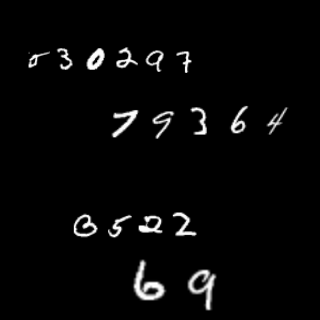 530297
79364
0522
69